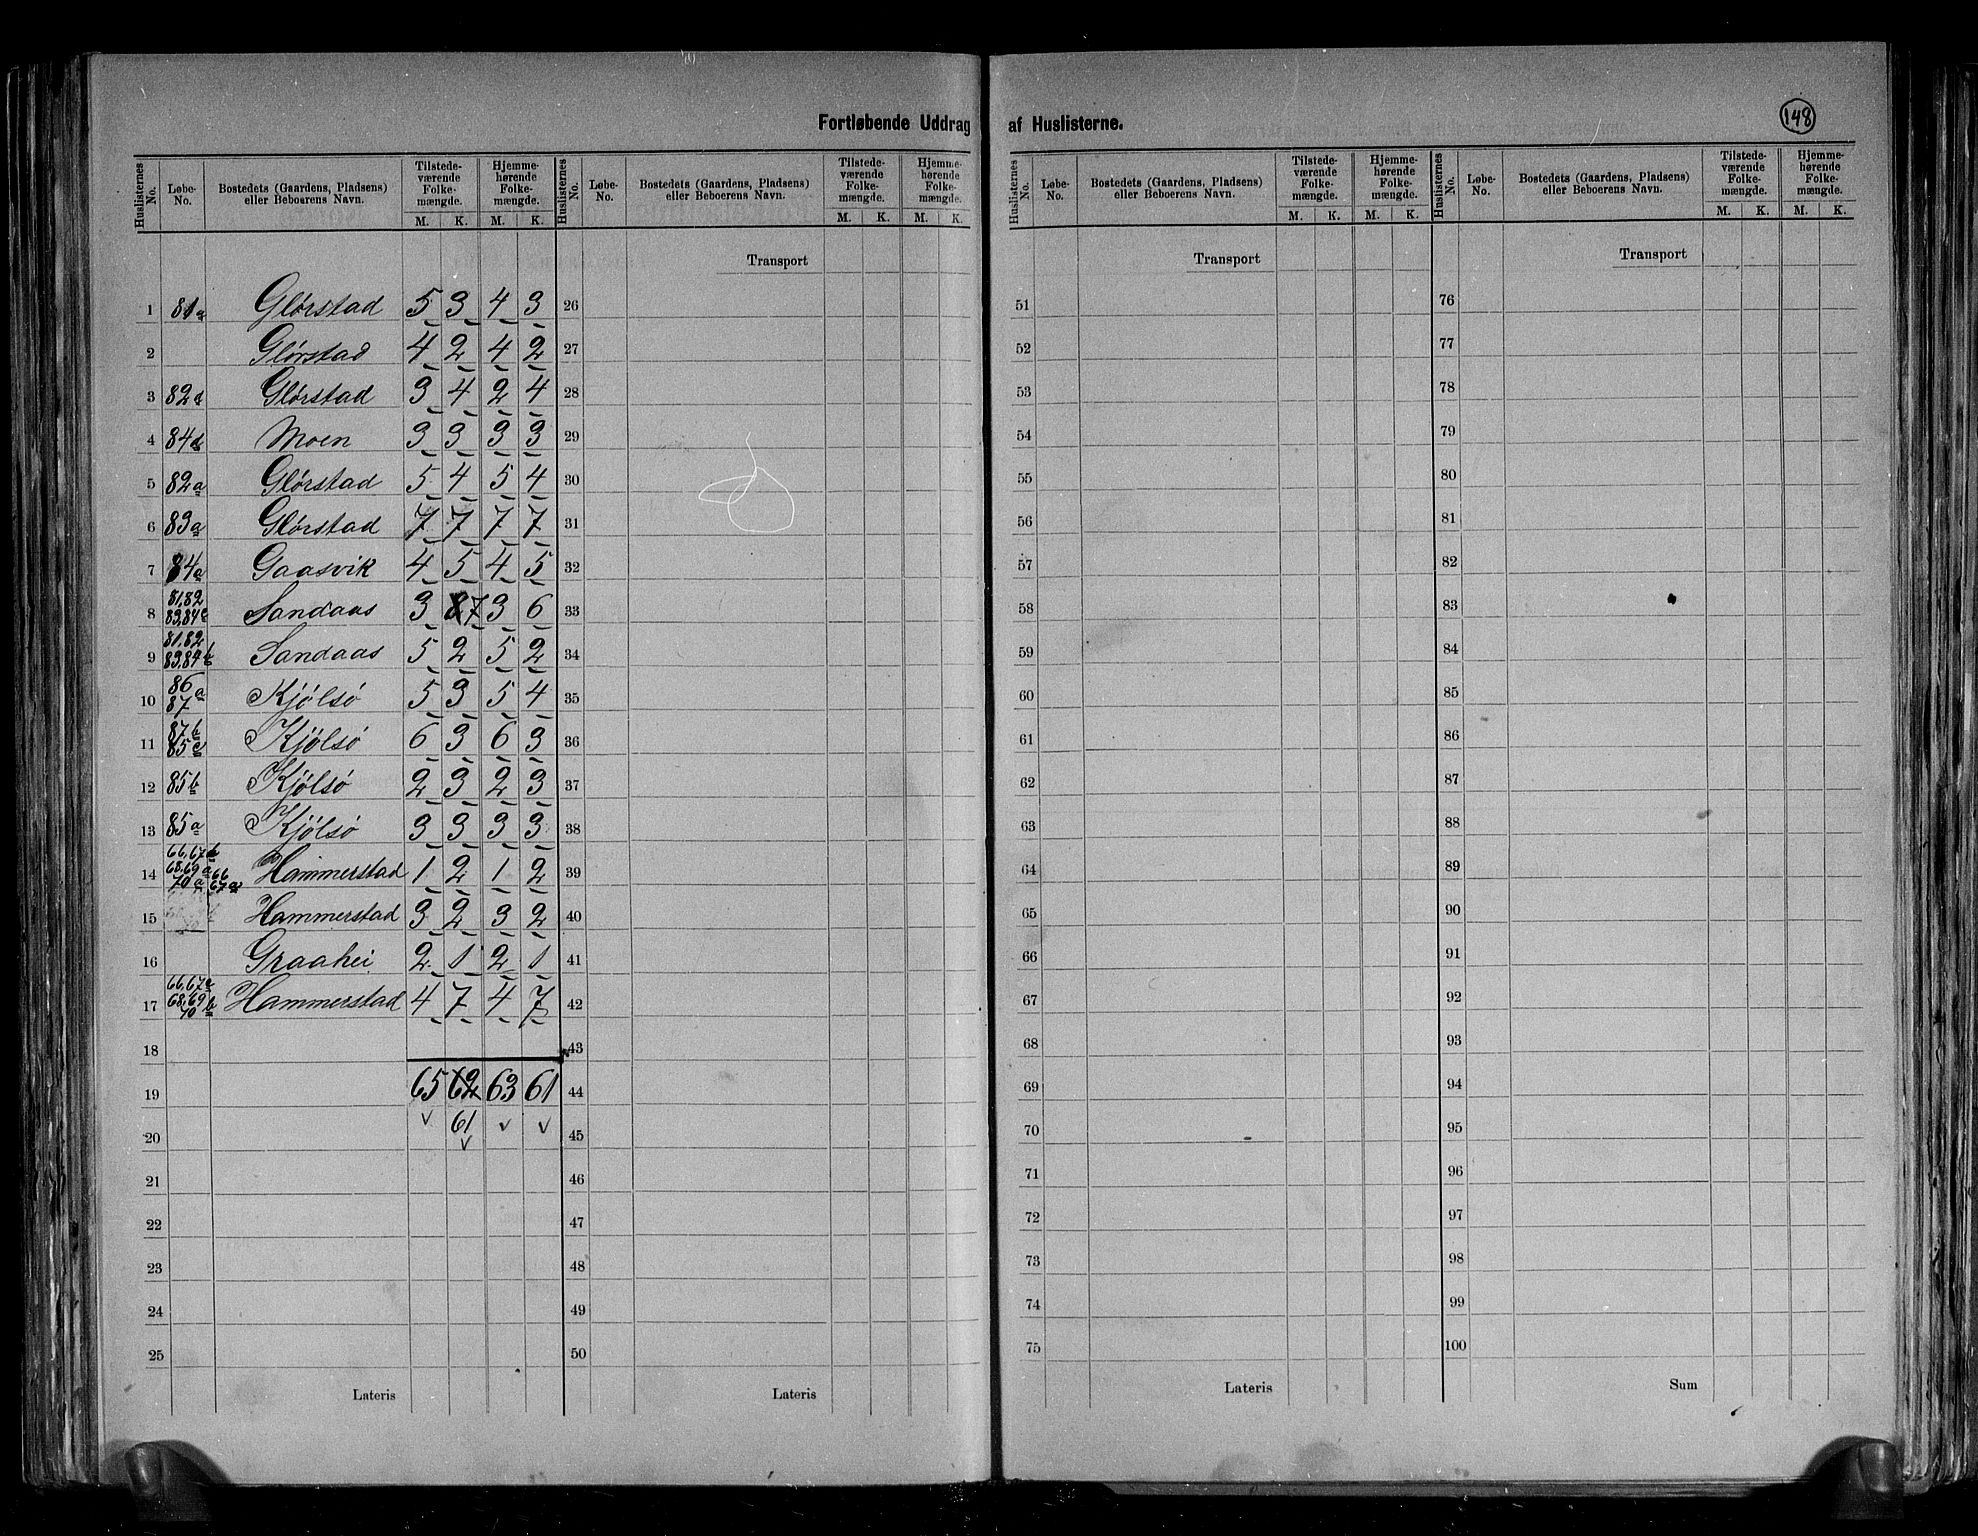 Fortløbende Uddrag af Huslisterne.
148
Huslisternes No. | Løbe-No. | Bostedets (Gaardens, Pladsens) eller Beboerens Navn. | Tilstedeværende Folkemængde. M. K. | Hjemmehørende Folkemængde. M. K.
1 81a Glørstad 5 3 4 3
2 Glørstad 4 2 4 2
3 82 Glørstad 3 4 2 4
4 84 Moen 3 3 3 3
5 82a Glørstad 5 4 5 4
6 83a Glørstad 7 7 7 7
7 84a Gaasvik 4 5 4 5
8 81,82 83,84c Sandaas 3 7 3 6
9 81,82 83,84b Sandaas 5 2 5 2
10 86 87 a Kjølsø 5 3 5 4
11 87b 85c Kjølsø 6 3 6 3
12 85b Kjølsø 2 3 2 3
13 85a Kjølsø 3 3 3 3
14 66,67b 68,69a 70a 66 67a Hammerstad 1 2 1 2
15 Hammerstad 3 2 3 2
16 Graahei 2 1 2 1
17 66,67a 68,69 70 b Hammerstad 4 7 4 7
18
19 65 62 63 61
20 61
21
22
23
24
25
Lateris
Huslisternes No. | Løbe-No. | Bostedets (Gaardens, Pladsens) eller Beboerens Navn. | Tilstedeværende Folkemængde. M. K. | Hjemmehørende Folkemængde. M. K.
Transport
26
27
28
29
30
31
32
33
34
35
36
37
38
39
40
41
42
43
44
45
46
47
48
49
50
Lateris
Huslisternes No. | Løbe-No. | Bostedets (Gaardens, Pladsens) eller Beboerens Navn. | Tilstedeværende Folkemængde. M. K. | Hjemmehørende Folkemængde. M. K.
Transport
51
52
53
54
55
56
57
58
59
60
61
62
63
64
65
66
67
68
69
70
71
72
73
74
75
Lateris
Huslisternes No. | Løbe-No. | Bostedets (Gaardens, Pladsens) eller Beboerens Navn. | Tilstedeværende Folkemængde. M. K. | Hjemmehørende Folkemængde. M. K.
Transport
76
77
78
79
80
81
82
83
84
85
86
87
88
89
90
91
92
93
94
95
96
97
98
99
100
Sum